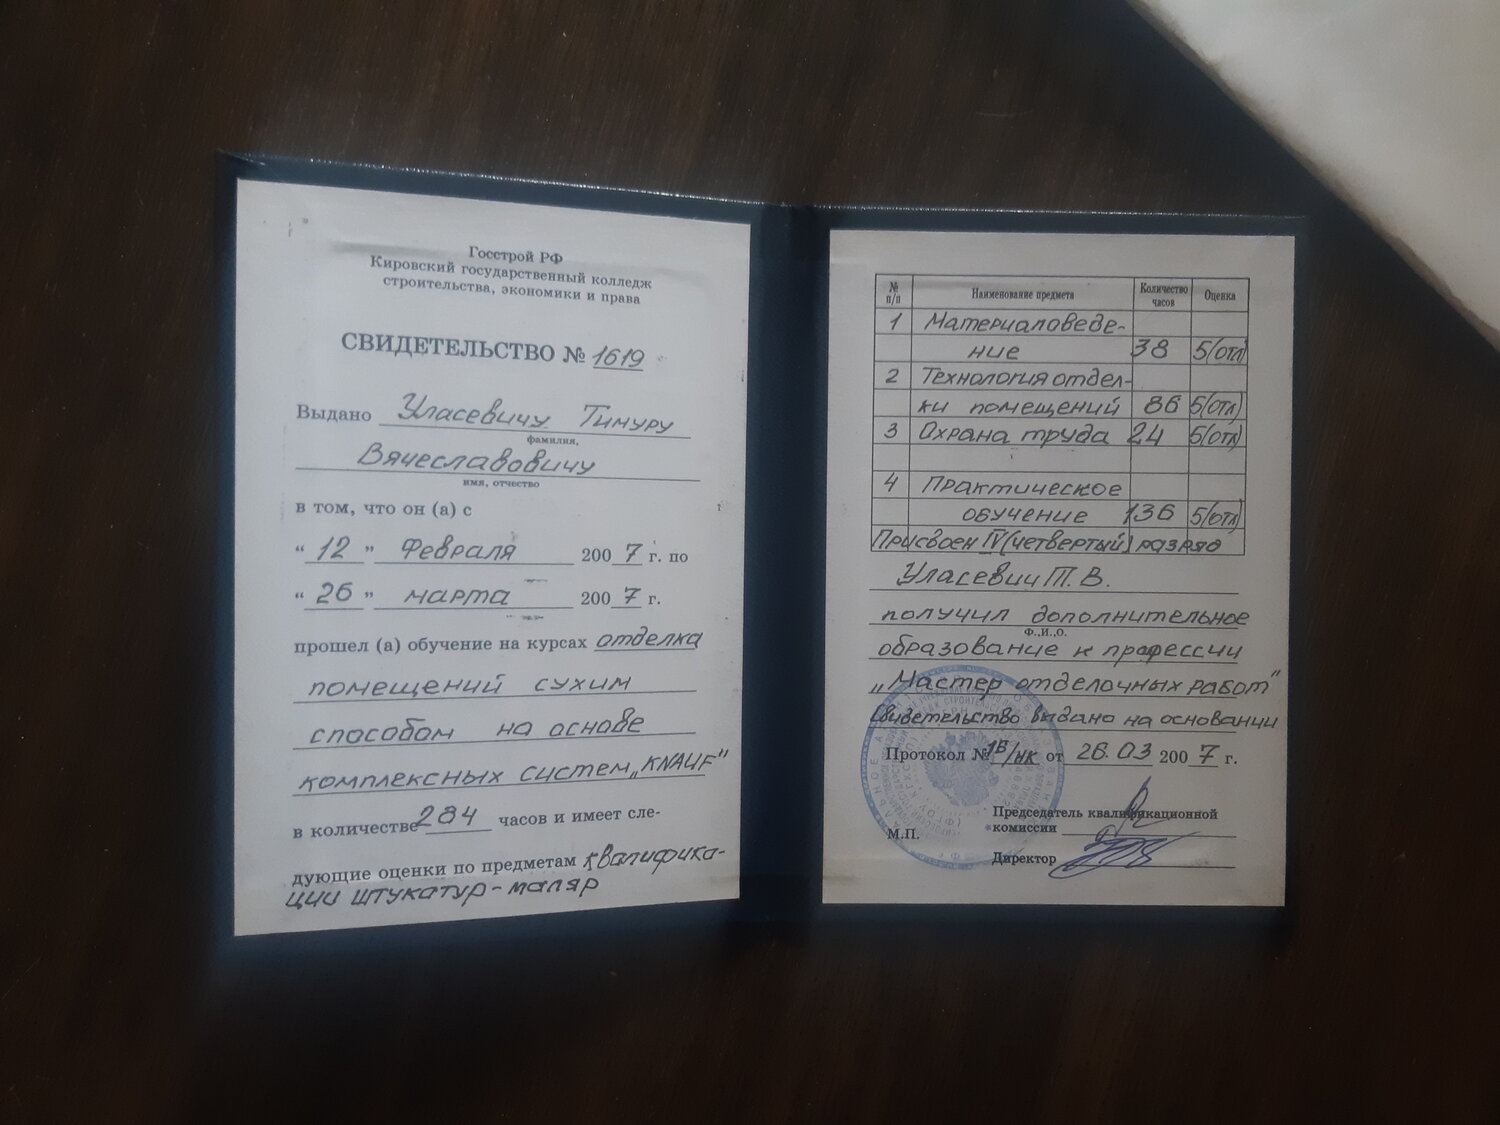 Госстрой РФ
Кировский государственный колледж
строительства, экономики и права
СВИДЕТЕЛЬСТВО № 1619
Выдано Уласевичу Тимуру
фамилия,
Вячеславовичу
имя, отчество
в том, что он (а) с
“ 12 ” февраля 2007 г. по
“ 26 ” марта 2007 г.
прошел (а) обучение на курсах отделка
помещений сухим
способом на основе
комплексных систем „KNAUF"
в количестве 284 часов и имеет сле-
дующие оценки по предметам квалифика-
ции штукатур-маляр
№ п/п Наименование предмета Количество часов Оценка
1 Материаловеде-
ние 38 5(отл)
2 Технология отдел-
ки помещений 86 5(отл)
3 Охрана труда 24 5(отл)
4 Практическое
обучение 136 5(отл)
Присвоен IV (четвертый) разряд
Уласевич Т. В.
получил дополнительное
Ф.,И.,О.
образование к профессии
„Мастер отделочных работ"
Свидетельство выдано на основании
Протокол № 1Б/нк от 26.03 2007 г.
Председатель квалификационной
комиссии
М.П.
Директор